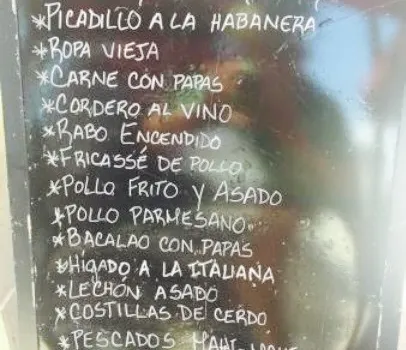 *PICADILLO A LA HABANERA
*ROPA VIEJA
*CARNE CON PAPAS
*CORDERO AL VINO
*RABO ENCENDIDO
*FRICASSÉ DE POLLO
*POLLO FRITO Y ASADO
*POLLO PARMESANO
*BACALAO CON PAPAS
*HIGADO A LA ITALIANA
*LECHÓN ASADO
*COSTILLAS DE CERDO
*PESCADOS MAHI-